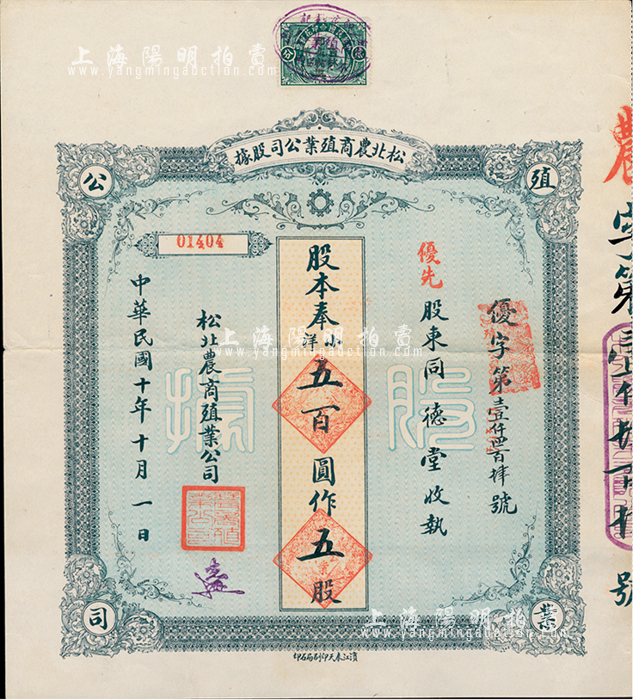 上海陽明拍賣
www.yangmingauction.com
松北農商殖業公司股據
殖
業
公
司
優字第壹仟四百肆號
優先股東同德堂收執
股本奉小洋五百圓作五股
01404
松北農商殖業公司
中華民國十年十月一日
股據
上海陽明拍賣
www.yangmingauction.com
上海陽明拍賣
www.yangmingauction.com
濱江奉天印刷局石印
農字第
號